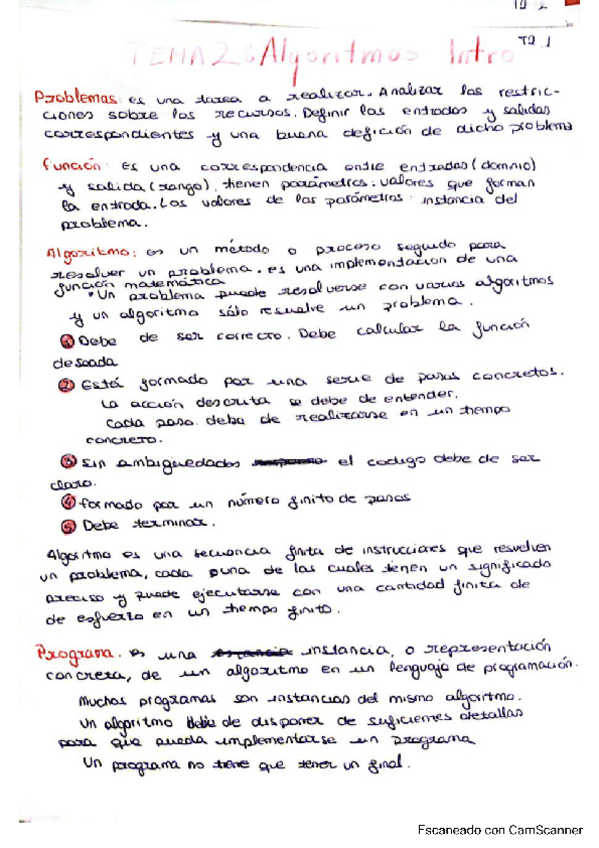 T2 1
TEMA 2: Algoritmos Intro
Problemas: es una tarea a realizar. Analizar las restric-
ciones sobre los recursos. Definir las entradas y salidas
correspondientes y una buena defición de dicho problema
función: Es una correspondencia entre entradas (domnio)
y salida (rango). tienen parámetros: valores que forman
la entrada. Los valores de los parámetros: instancia del
problema.
Algoritmo: es un método o proceso seguido para
resolver un problema. es una implementación de una
función matemática
• Un problema puede resolverse con varios algoritmos
y un algoritmo sólo resuelve un problema.
① Debe de ser correcto. Debe calcular la función
deseada
② Está formado por una serie de pasos concretos.
La acción descrita se debe de entender.
Cada paso debe de realizarse en un tiempo
concreto.
③ Sin ambiguedades el codigo debe de ser
claro.
④ formado por un número finito de pasos
⑤ Debe terminar.
Algoritmo es una secuencia finita de instrucciones que resuelven
un problema, cada una de las cuales tienen un significado
preciso y puede ejecutarse con una cantidad finita de
de esfuerzo en un tiempo finito.
Programa: es una instancia, o representación
concreta, de un algoritmo en un lenguaje de programación.
Muchos programas son instancias del mismo algoritmo.
Un algoritmo debe de disponer de suficientes detalles
para que pueda implementarse un programa
Un programa no tiene que tener un final.
Escaneado con CamScanner